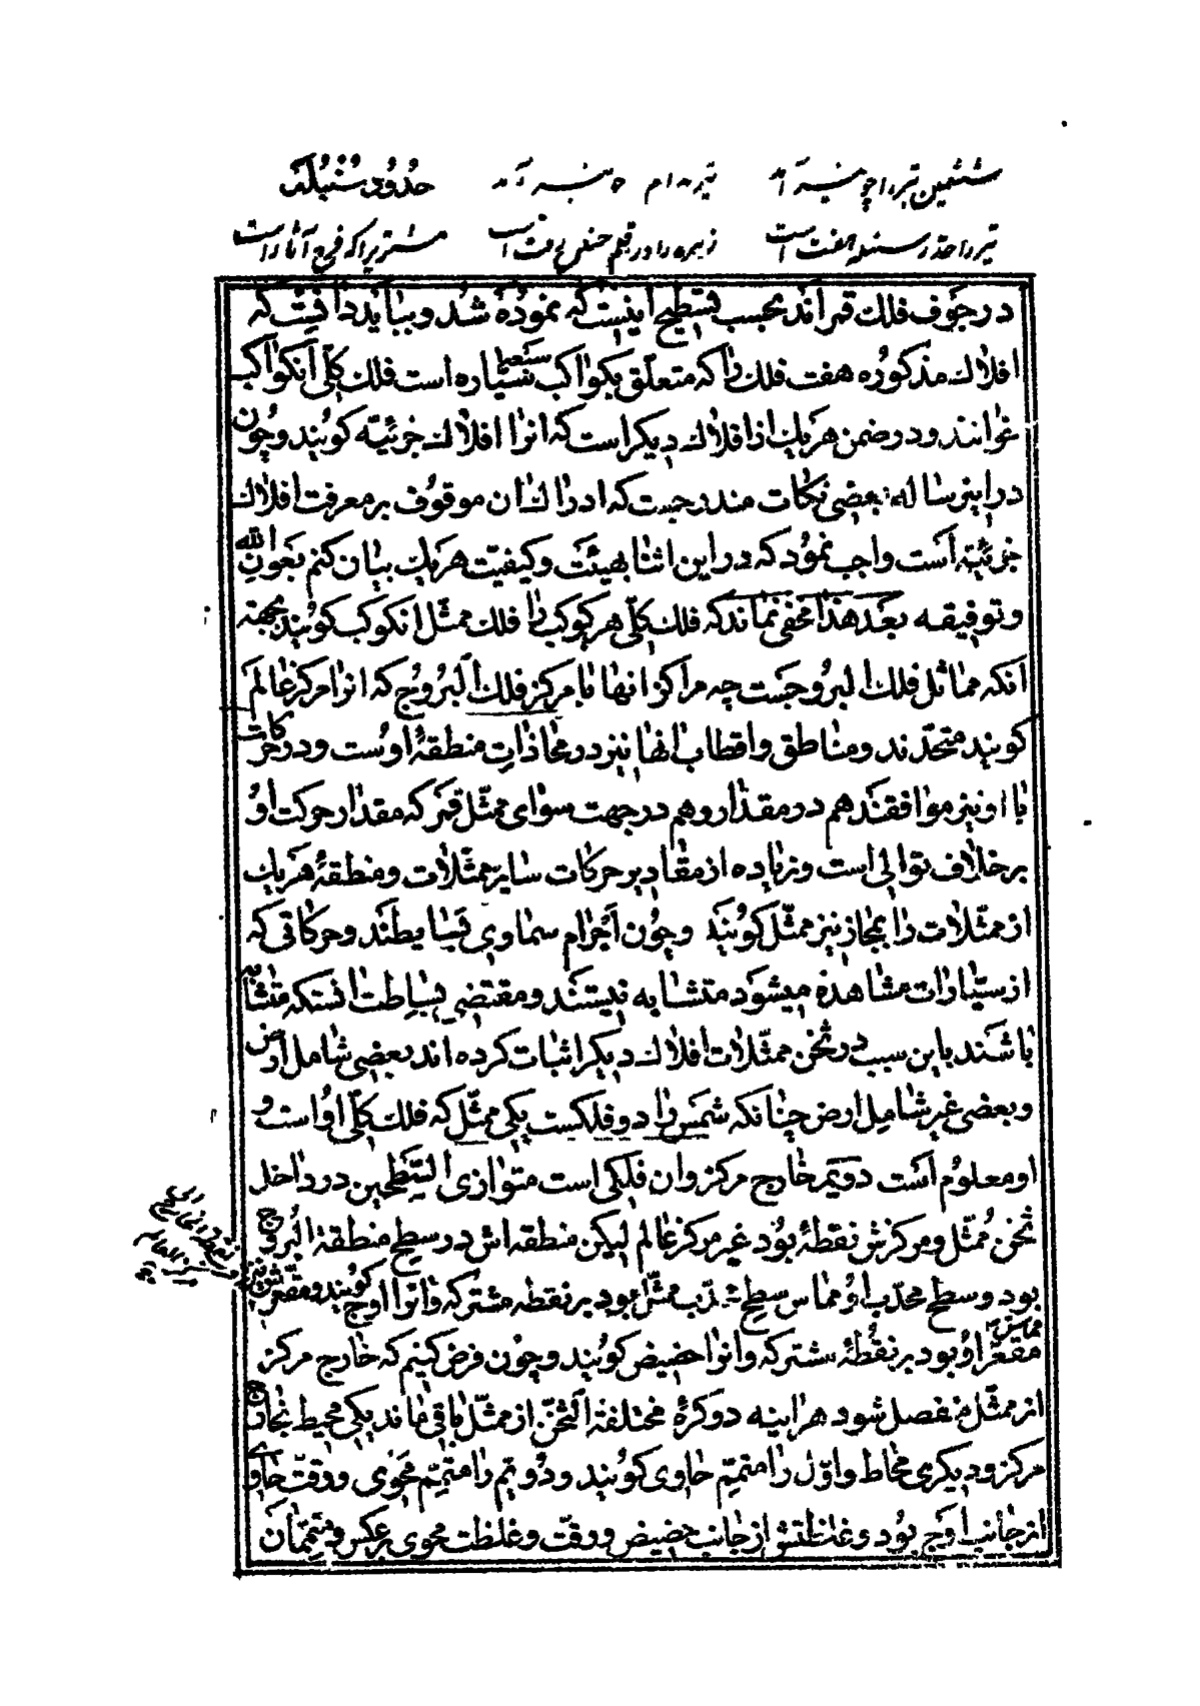 ششمین تیر را چو
تیر
حدود سنبله
تیر را خدر سنبله هفت است
زهره را در
مشتریرا که فرع آثار است
در جوف فلك قمراند بحسب تسطیح اینست که نموده شد و بباید دانست که
افلاك مذکوره هفت فلك را که متعلّق بکواکب سبعهٔ سیّاره است فلك کلّی آنکواکب
خوانند و در ضمن هریك از افلاك دیکر است که انرا افلاك جزئیّه کویند و چون
در این رساله بعضی نکات مندرجست که ادراك ان موقوف بر معرفت افلاك
جزئیّه است واجب نمود که در این اثنا بهیئت و کیفیّت هریك بیان کنم بعون الله
و توفیقه بعد هذا مخفی نماند که فلك کلّی هر کوکب را فلك ممثّل انکوکب کویند بجهة
آنکه مماثل فلك البروجست چه مراکز انها با مرکز فلك البروج که انرا مرکز عالم
کویند متحدند و مناطق و اقطاب انها نیز در محاذات منطقهٔ اوست و در حرکات
با او نیز موافقند هم در مقدار و هم در جهت سوای ممثّل قمر که مقدار حرکت او
بر خلاف توالی است و زیاده از مقادیر حرکات سایر ممثّلات و منطقهٔ هریك
از ممثّلات را بمجاز نیز ممثّل کویند و چون اجرام سماوی بسایطند و حرکاتی که
از سیّارات مشاهده میشود متشابه نیستند و مقتضی بساطت انستکه متشابه
باشند باین سبب در ثخن ممثّلات افلاك دیکر اثبات کرده اند بعضی شامل ارض
و بعضی غیر شامل ارض چنانکه شمس را دو فلکست یکی ممثّل که فلك کلّی او است و
او معلوم است دویّم خارج مرکز وان فلکی است متوازی السّطحین در داخل
ثخن ممثّل و مرکزش نقطهٔ بود غیر مرکز عالم لیکن منطقه اش در سطح منطقة البروج
بود و سطح محدّب او مماس سطح محدّب ممثّل بود بر نقطه مشترکه وانرا اوج کویند و مقعّرش نیز
مماس مقعّر او بود بر نقطهٔ مشترکه وانرا حضیض کویند و چون فرض کنیم که خارج مرکز
از ممثّل منفصل شود هراینه دو کرهٔ مختلفة الثخن از ممثّل باقی ماند یکی محیط بخارج
مرکز و دیکری محاط و اوّل را متمّم حاوی کویند و دویّم را متمّم محوی و رقّت حاوی
از جانب اوج بود و غلظتش از جانب حضیض و رقّت و غلظت محوی بر عکس و متمّمان